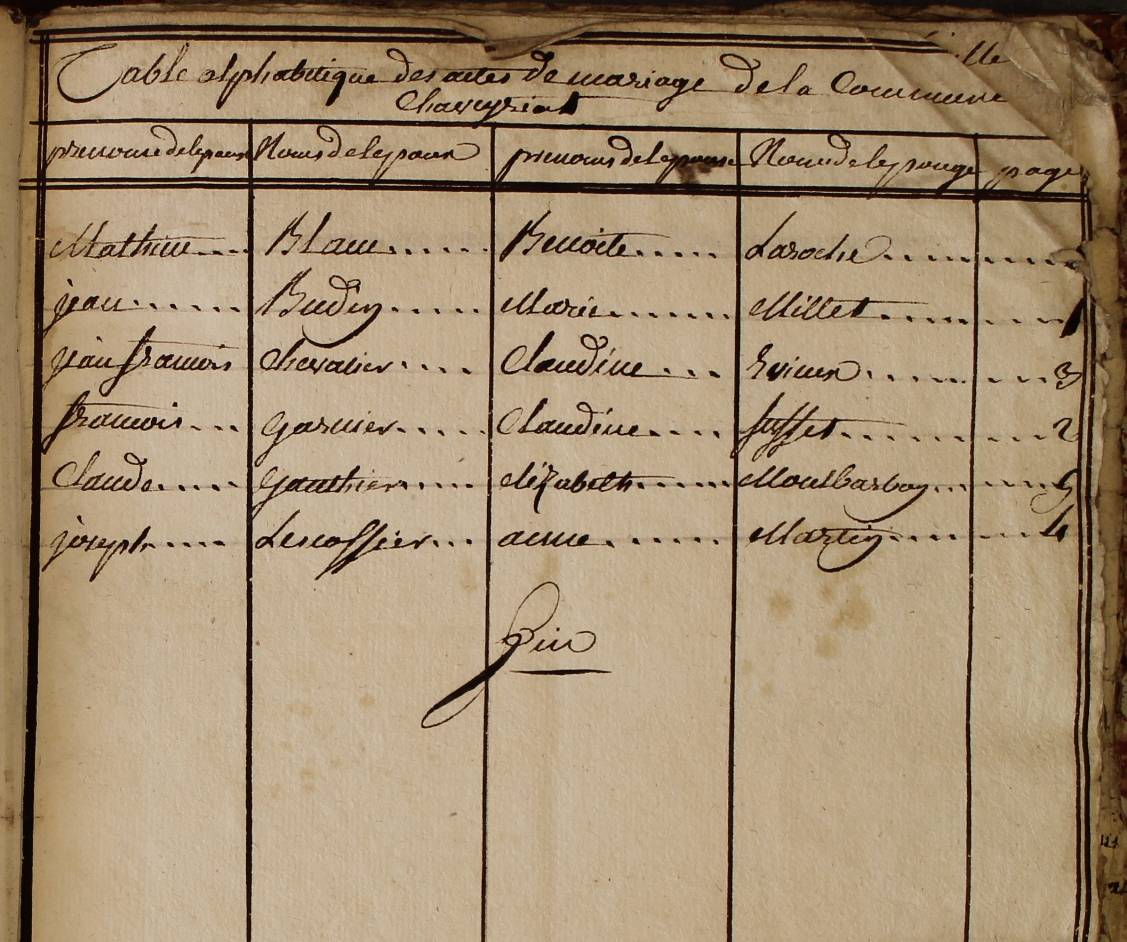 Table alphabetique des actes de mariage de la Commune
Chaveyriat
prenoms de lepoux Noms de lepoux prenoms de lepouse Noms de lepouse page
Mathieu Blanc Benoite Laroche
jean Budin Marie Millet 1
jean francois Chevalier Claudine 3
francois Garnier Claudine 2
Claude Gauthier elizabeth Montbarbon 5
joseph Lescoffier anne Martin 4
Fin